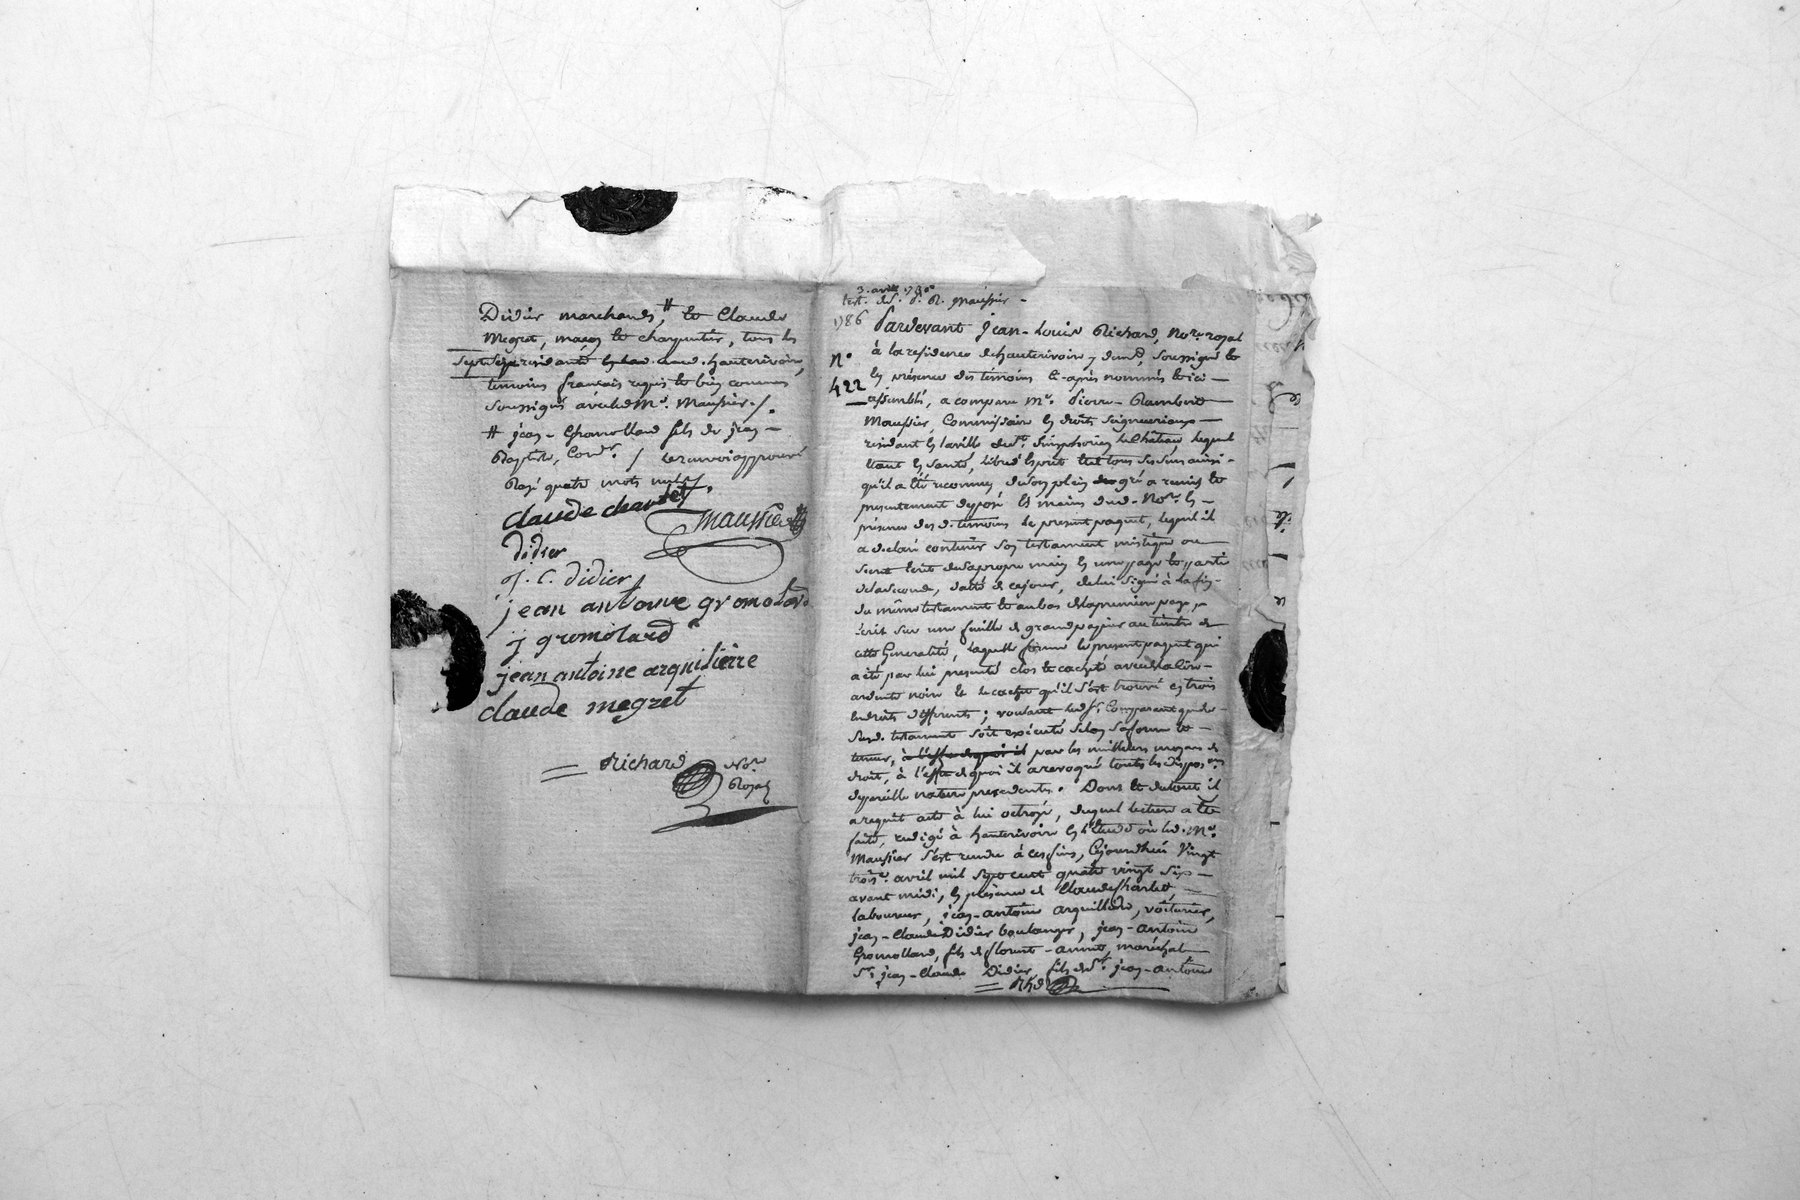 3. avril 1786
test. de S. P. R. Maussier -
1786
Pardevant Jean-Louis Richard, No.re royal
à la residence de hauterivoire y dem.t, soussigné et
N.o
en présence des témoins ci-après nommés et ici -
422
assemblés, a comparu M.e Pierre-Rambert
Maussier, Commissaire en droits seigneuriaux -
residant en la ville de S.t Simphorien le Château lequel
étant en santé, libre d'esprit et de tous ses sens ainsi -
qu'il a été reconnu, de son plein gré a remis et
presentement deposé es mains dud. No.re en -
présence desd. temoins le present paquet, lequel il
a declaré contenir son testament mistique ou
secret écrit de sa propre main en une page et partie
de la seconde, datté de ce jour, de lui signé à la fin -
du même testament et au bas de la premiere page,
écrit sur une feuille de grand papier au timbre de
cette Generalité, laquelle forme le present paquet qui
a été par lui presenté clos et cacheté avec de la cire -
ardente noire et le cachet qu'il s'est trouvé en trois
endroits differents; voulant led. S.r Comparant que le -
susd. testament soit exécuté selon sa forme et -
teneur, à l'effet de quoi il par les meilleurs moyens de
droit, à l'effet de quoi il a revoqué toutes les dispos.ons
de pareille nature precedentes. Dont et du tout il
a requit acte à lui octroyé, duquel lecture a été
faite, redigé à hauterivoire en l'Etude où led. M.e
Maussier s'est rendu à ces fins, Cejourdhui vingt
trois.e avril mil sept cent quatre vingt six -
avant midi, en présence de Claude Charlet,
laboureur, jean-antoine arquilliere, voiturier,
jean-Claude Didier boulanger, jean-antoine
Gromollard, fils de florent-anne, maréchal
S.r jean-Claude Didier, fils de S.r jean-antoine
Didier marchands, # et Claude
Megret, maçon et charpentier, tous les
sept residants hauterivoire,
temoins français requis et bien connus
soussignés avec led. M.e Maussier./.
# jean-Gromolland fils de jean -
Baptiste, Cord.r / le renvoi approuvé
Rayé quatre mots nuls/.
Claude charlet
Maussier
didier
J. C. didier
jean antoine gromolard
j gromolard
jean antoine arquilierre
claude megret
Richard No.re
Royal